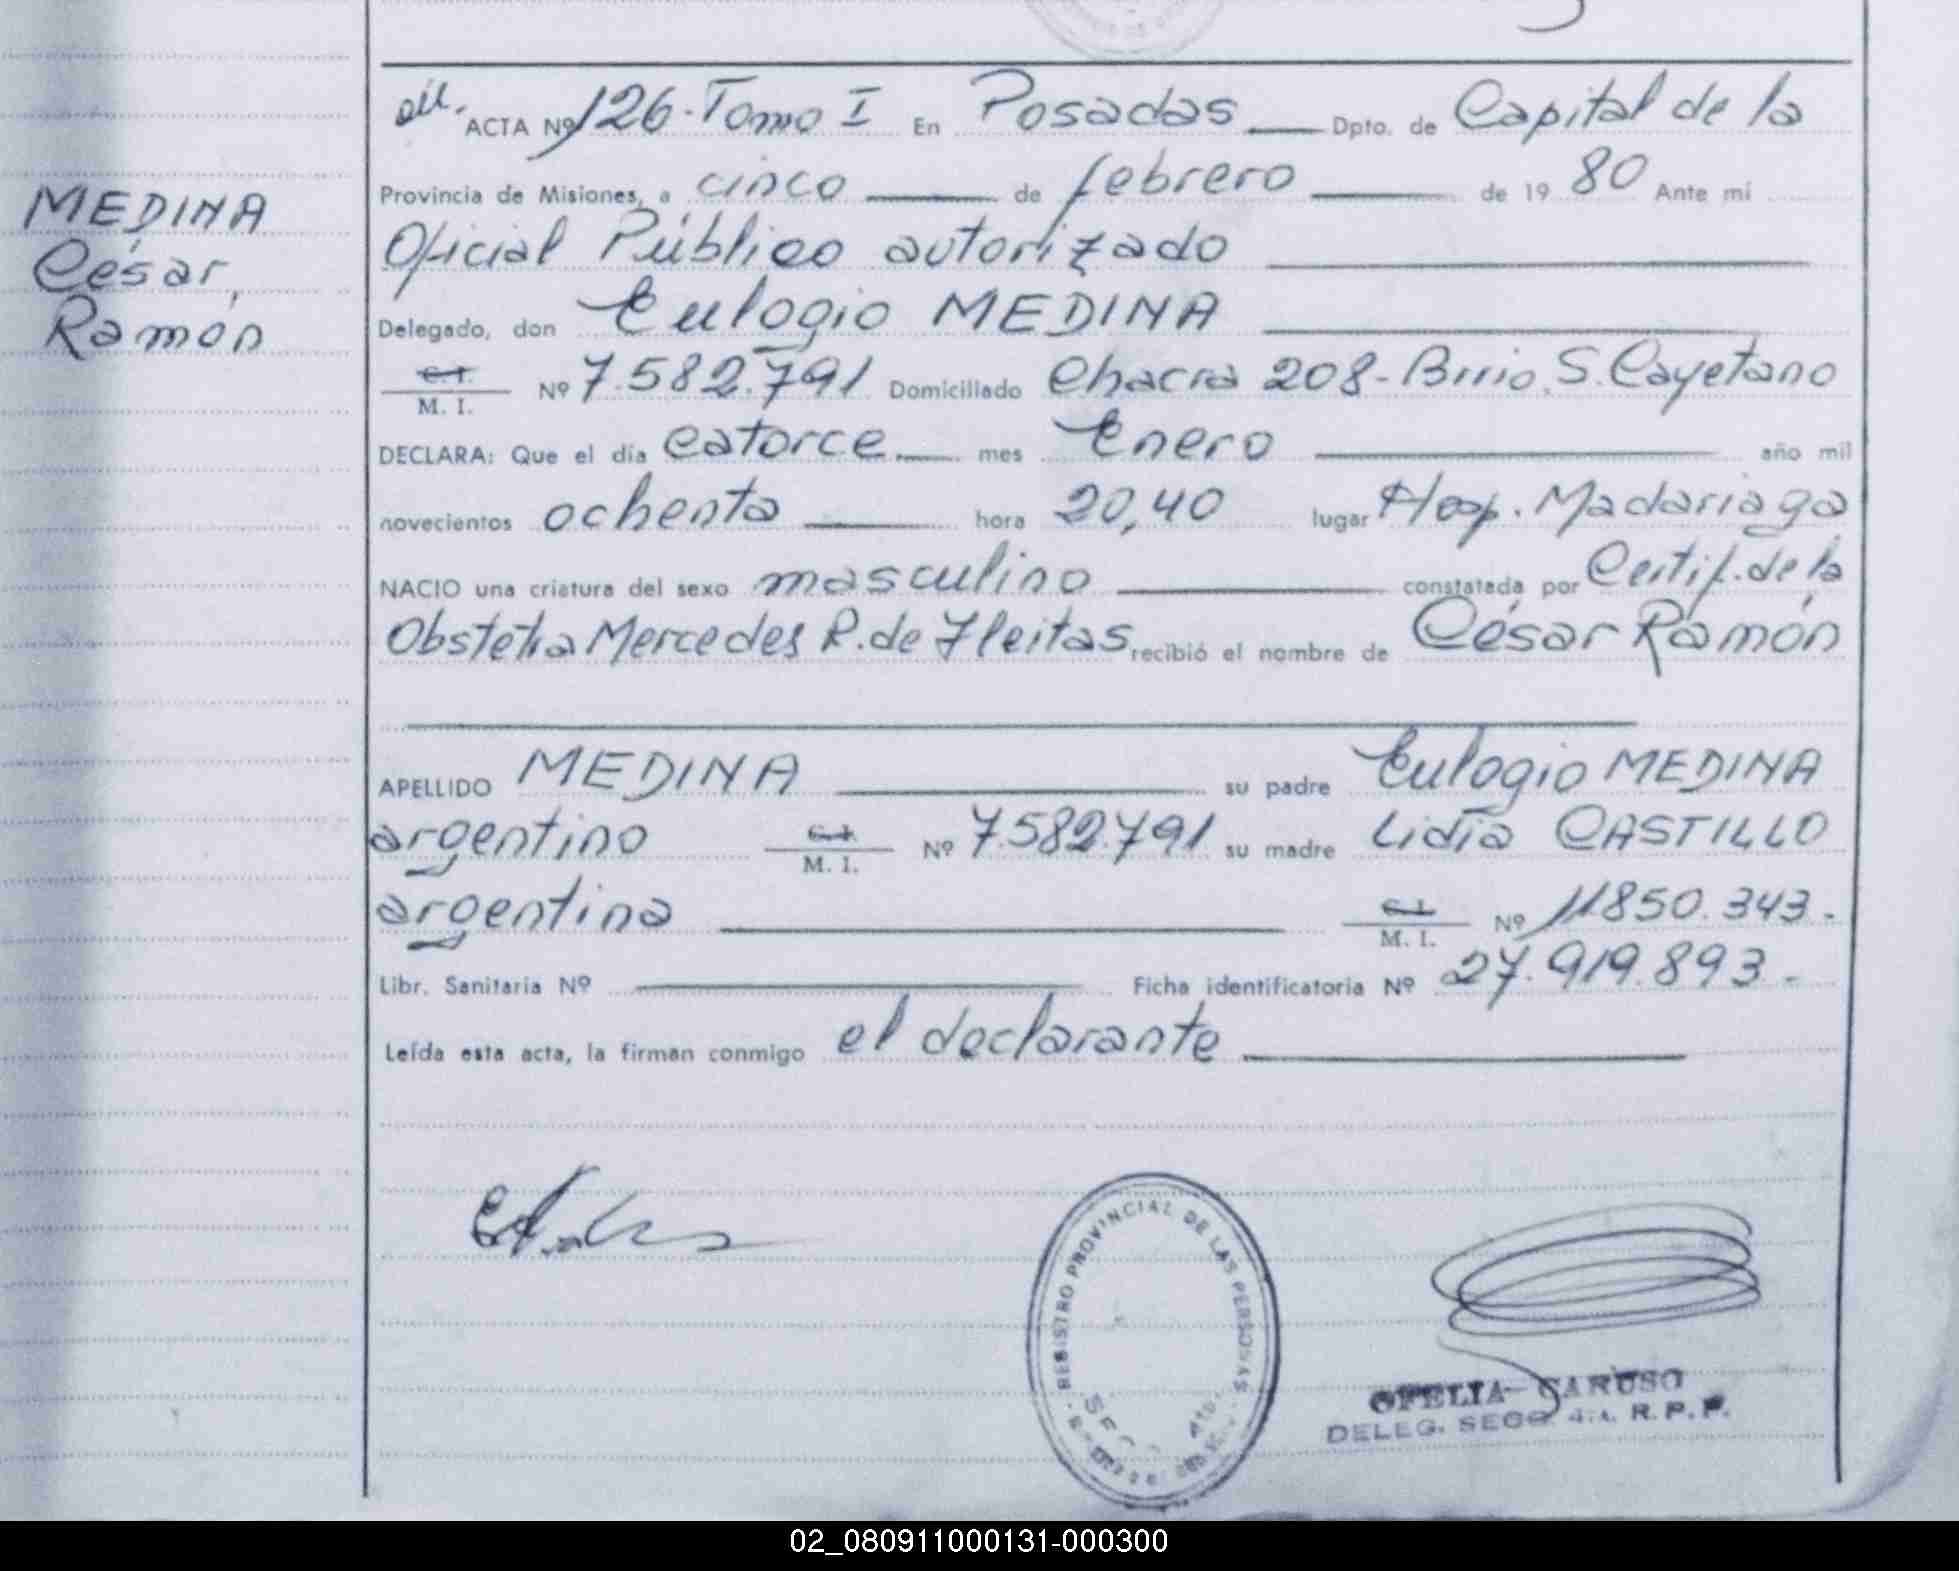 ACTA Nº 126. Tomo I En Posadas Dpto. de Capital de la
Provincia de Misiones, a cinco de febrero de 19 80 Ante mi
Oficial Público autorizado
Delegado, don Eulogio MEDINA
C. I.
M. I. Nº 7.582.791 Domiciliado Chacra 208 - Brrio. S. Cayetano
DECLARA: Que el día catorce mes Enero año mil
novecientos ochenta hora 20,40 lugar Hosp. Madariaga
NACIO una criatura del sexo masculino constatada por Certif. de la
Obstetra Mercedes R. de Fleitas recibió el nombre de César Ramón
APELLIDO MEDINA su padre Eulogio MEDINA
argentino C. I. M. I. Nº 7.582.791 su madre Lidia CASTILLO
argentina C. I. M. I. Nº 11850.343.-
Libr. Sanitaria Nº Ficha identificatoria Nº 27.919.893.-
Leída esta acta, la firman conmigo el declarante
MEDINA
César,
Ramón
REGISTRO PROVINCIAL DE LAS PERSONAS
OFELIA CARUSO
DELEG. SECC. 4ta. R. P. P.
02_080911000131-000300